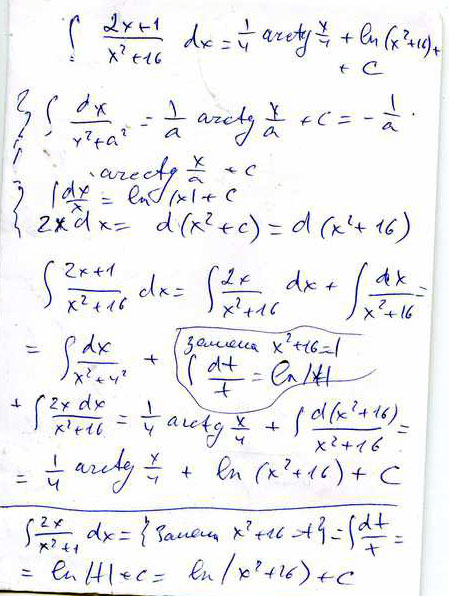 ∫ (2x+1)/(x²+16) dx = 1/4 arctg x/4 + ln(x²+16) +
+ C
∫ dx/(x²+a²) = 1/a arctg x/a + C = - 1/a ·
· arcctg x/a + C
∫ dx/x = ln|x| + C
2x dx = d(x²+c) = d(x²+16)
∫ (2x+1)/(x²+16) dx = ∫ 2x/(x²+16) dx + ∫ dx/(x²+16) =
= ∫ dx/(x²+4²) +
замена x²+16=t
∫ dt/t = ln|t|
+ ∫ 2x dx/(x²+16) = 1/4 arctg x/4 + ∫ d(x²+16)/(x²+16) =
= 1/4 arctg x/4 + ln(x²+16) + C
∫ 2x/(x²+1) dx = {Замена x²+16=t} = ∫ dt/t =
= ln|t| + C = ln(x²+16) + C